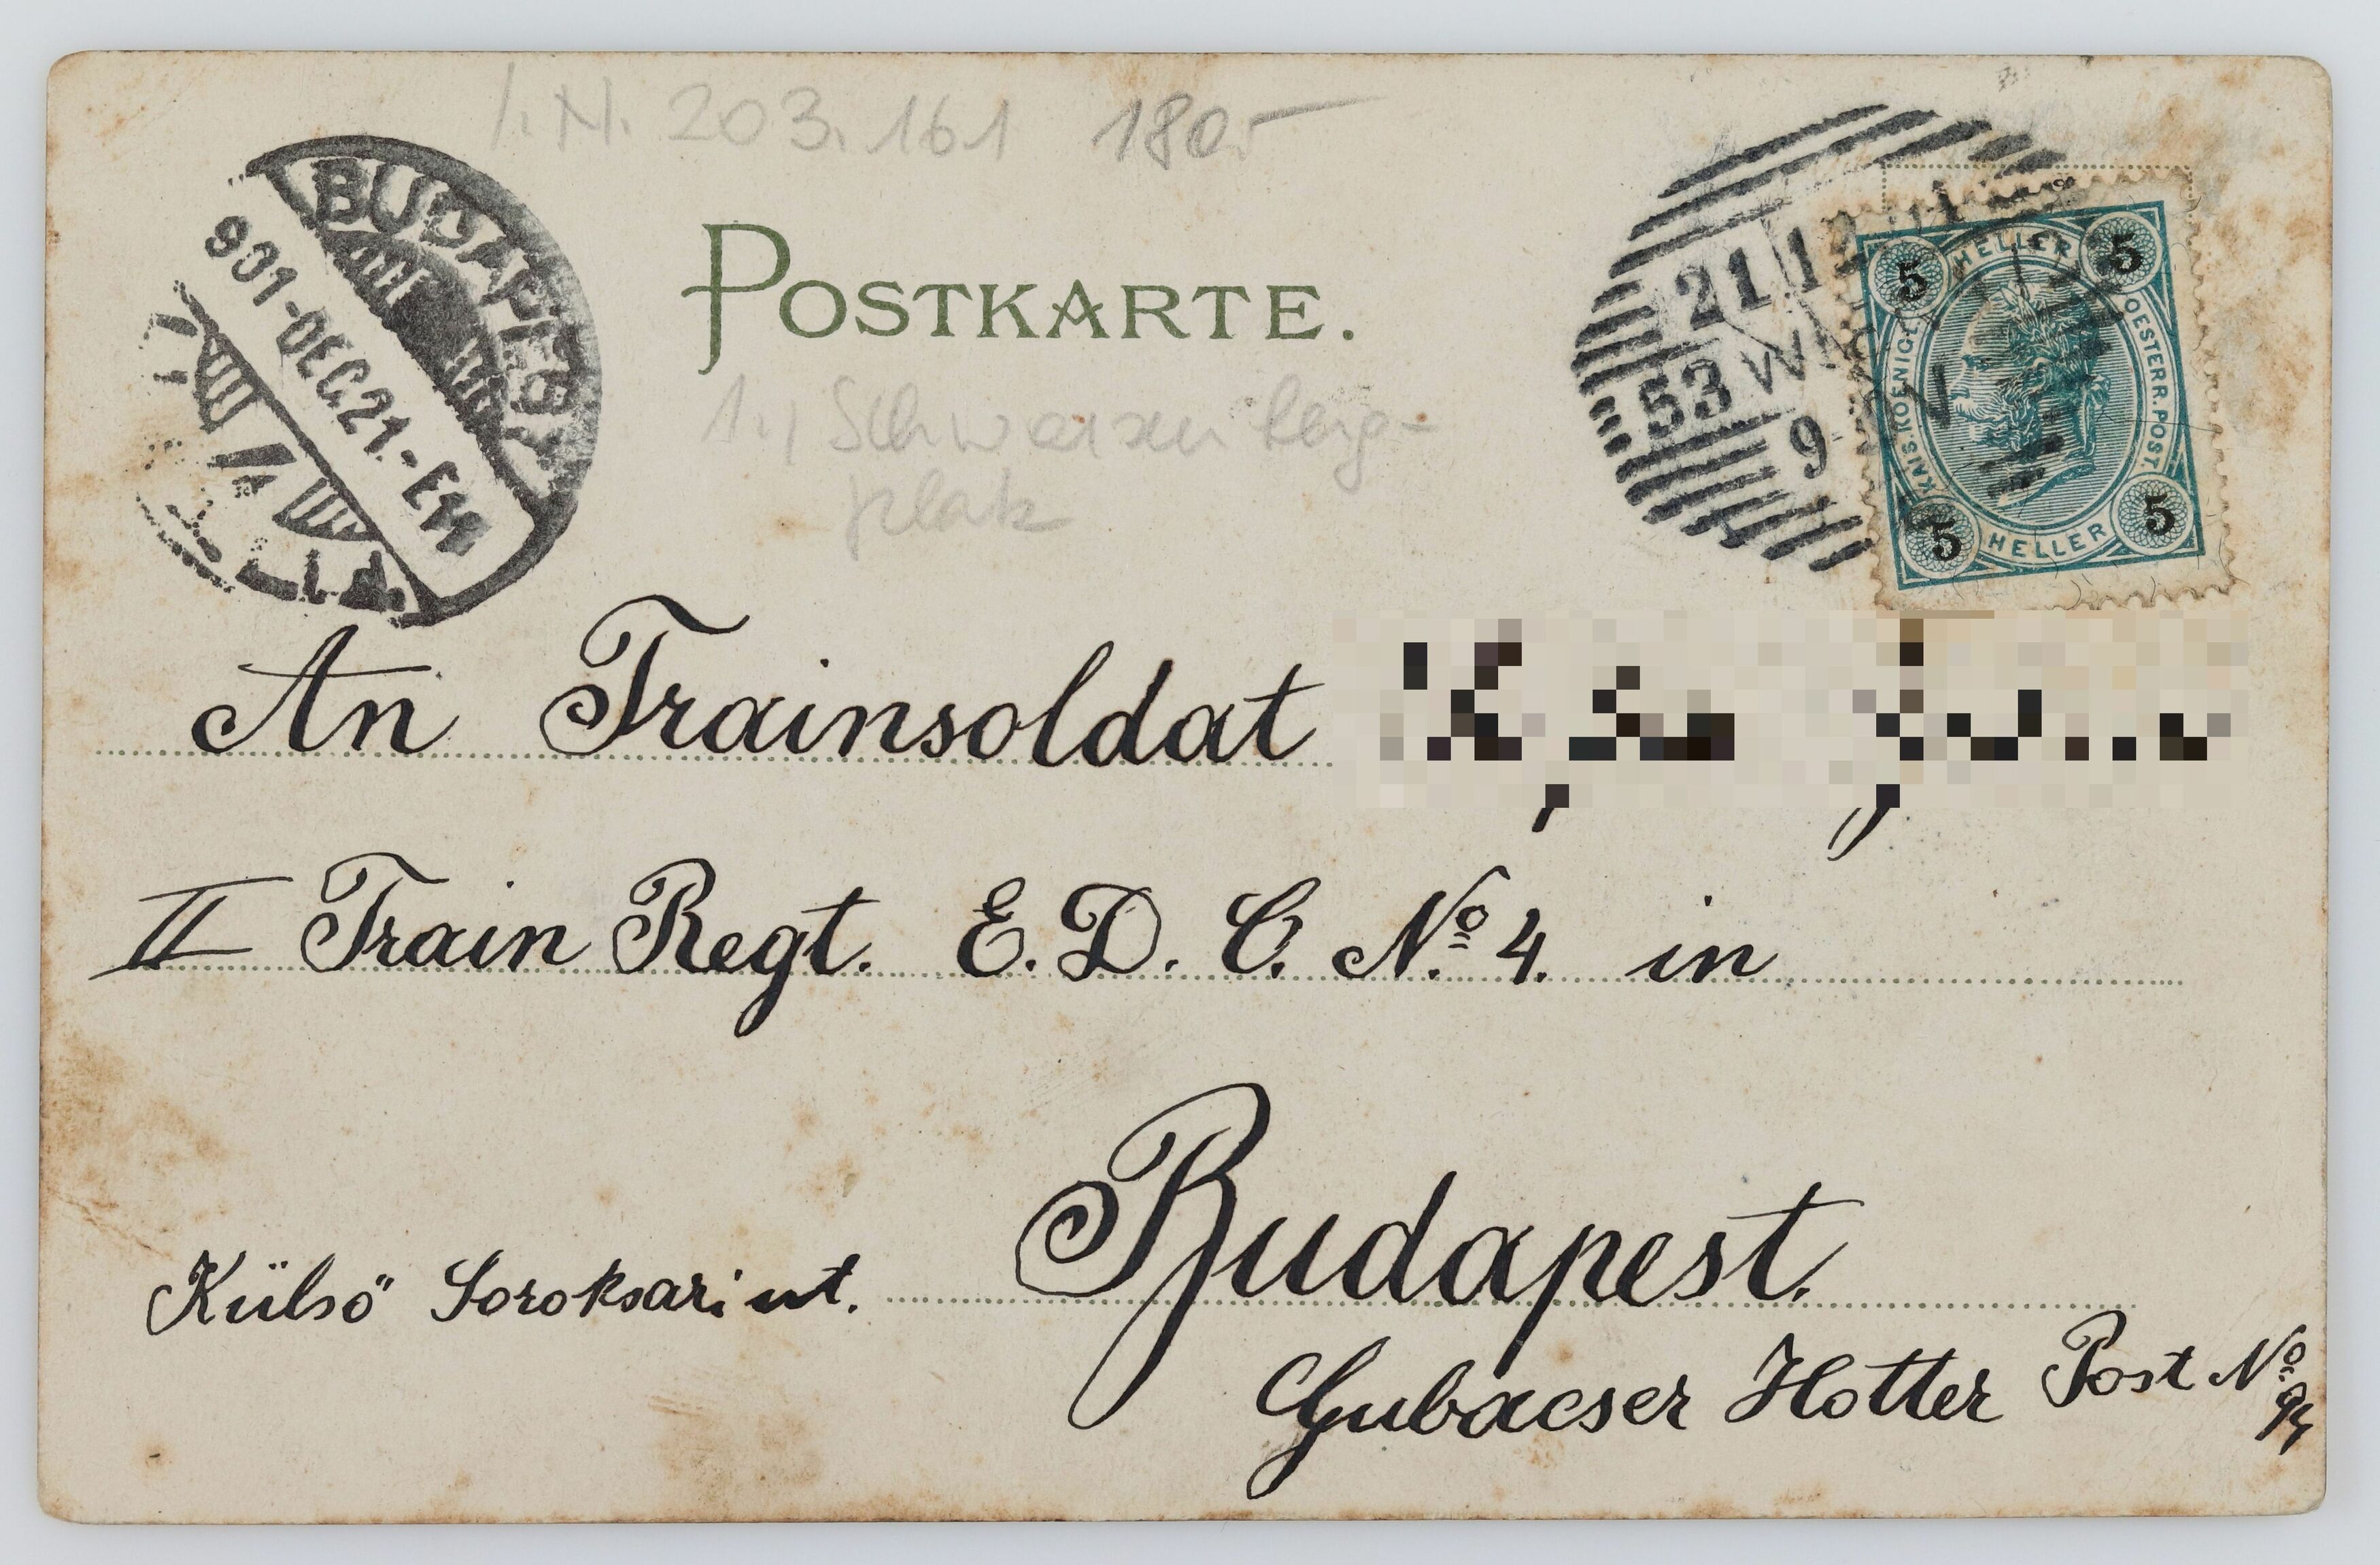 I. N. 203.161 180.-
BUDAPEST
901-DEC.21.-E
POSTKARTE.
1., Schwarzenberg-
platz
21 12
53 W
9
HELLER
KAIS. KOENIGL. OESTERR. POST.
HELLER
5 5
5 5
An Trainsoldat
II Train Regt. E. D. C. Nº 4. in
Budapest.
Külsö Soroksari ut.
Gubacser Hotter Post Nº